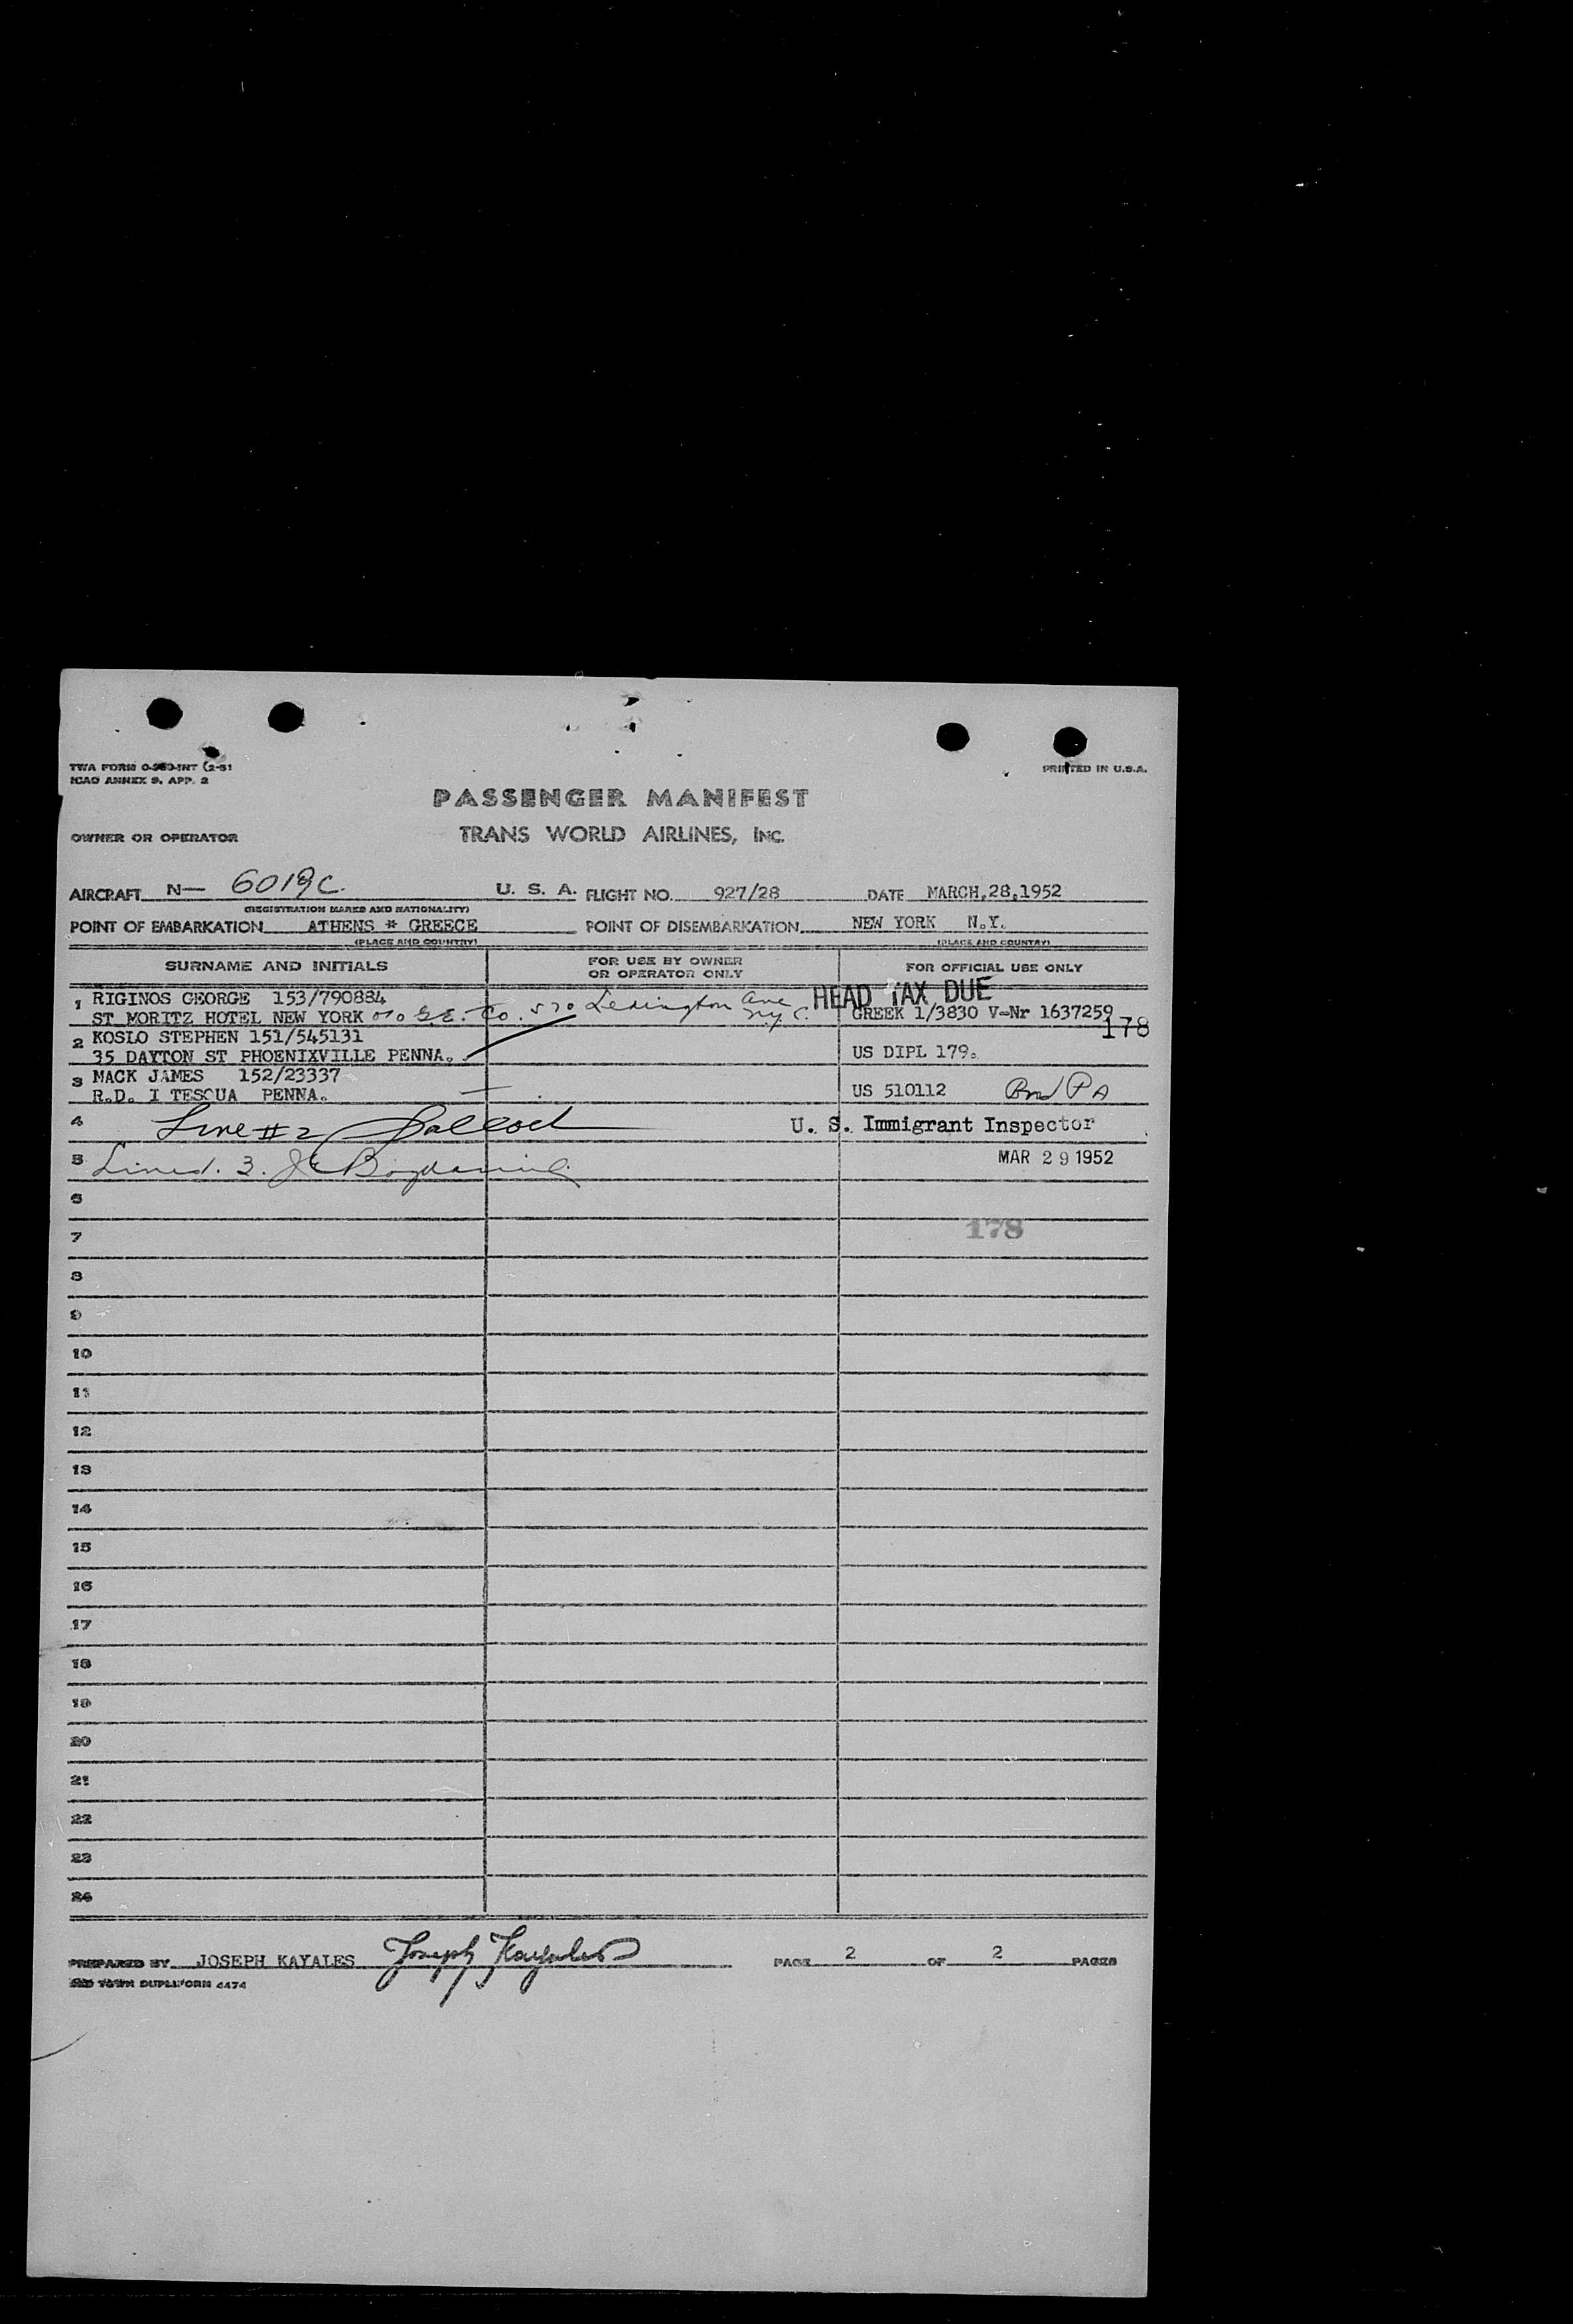 TWA FORM O-960-INT (2-51
ICAO ANNEX 9. APP. 2
PRINTED IN U.S.A.
PASSENGER MANIFEST
OWNER OR OPERATOR TRANS WORLD AIRLINES, INC.
AIRCRAFT N— 6019C. U. S. A. FLIGHT NO. 927/28 DATE MARCH,28,1952
(REGISTRATION MARKS AND NATIONALITY)
POINT OF EMBARKATION ATHENS * GREECE POINT OF DISEMBARKATION NEW YORK N.Y.
(PLACE AND COUNTRY) (PLACE AND COUNTRY)
SURNAME AND INITIALS FOR USE BY OWNER OR OPERATOR ONLY FOR OFFICIAL USE ONLY
1 RIGINOS GEORGE 153/790884 HEAD TAX DUE
ST MORITZ HOTEL NEW YORK c/o G.E. Co. 570 Lexington Ave N.Y.C. GREEK 1/3830 V-Nr 1637259
178
2 KOSLO STEPHEN 151/545131
35 DAYTON ST PHOENIXVILLE PENNA. US DIPL 179.
3 MACK JAMES 152/23337
R.D. I TESQUA PENNA. US 510112 PA
4 Line #2 U. S. Immigrant Inspector
5 Lines 1. 3. MAR 29 1952
6
7 178
8
9
10
11
12
13
14
15
16
17
18
19
20
21
22
23
24
PREPARED BY JOSEPH KAYALES Joseph Kayales PAGE 2 OF 2 PAGES
4474